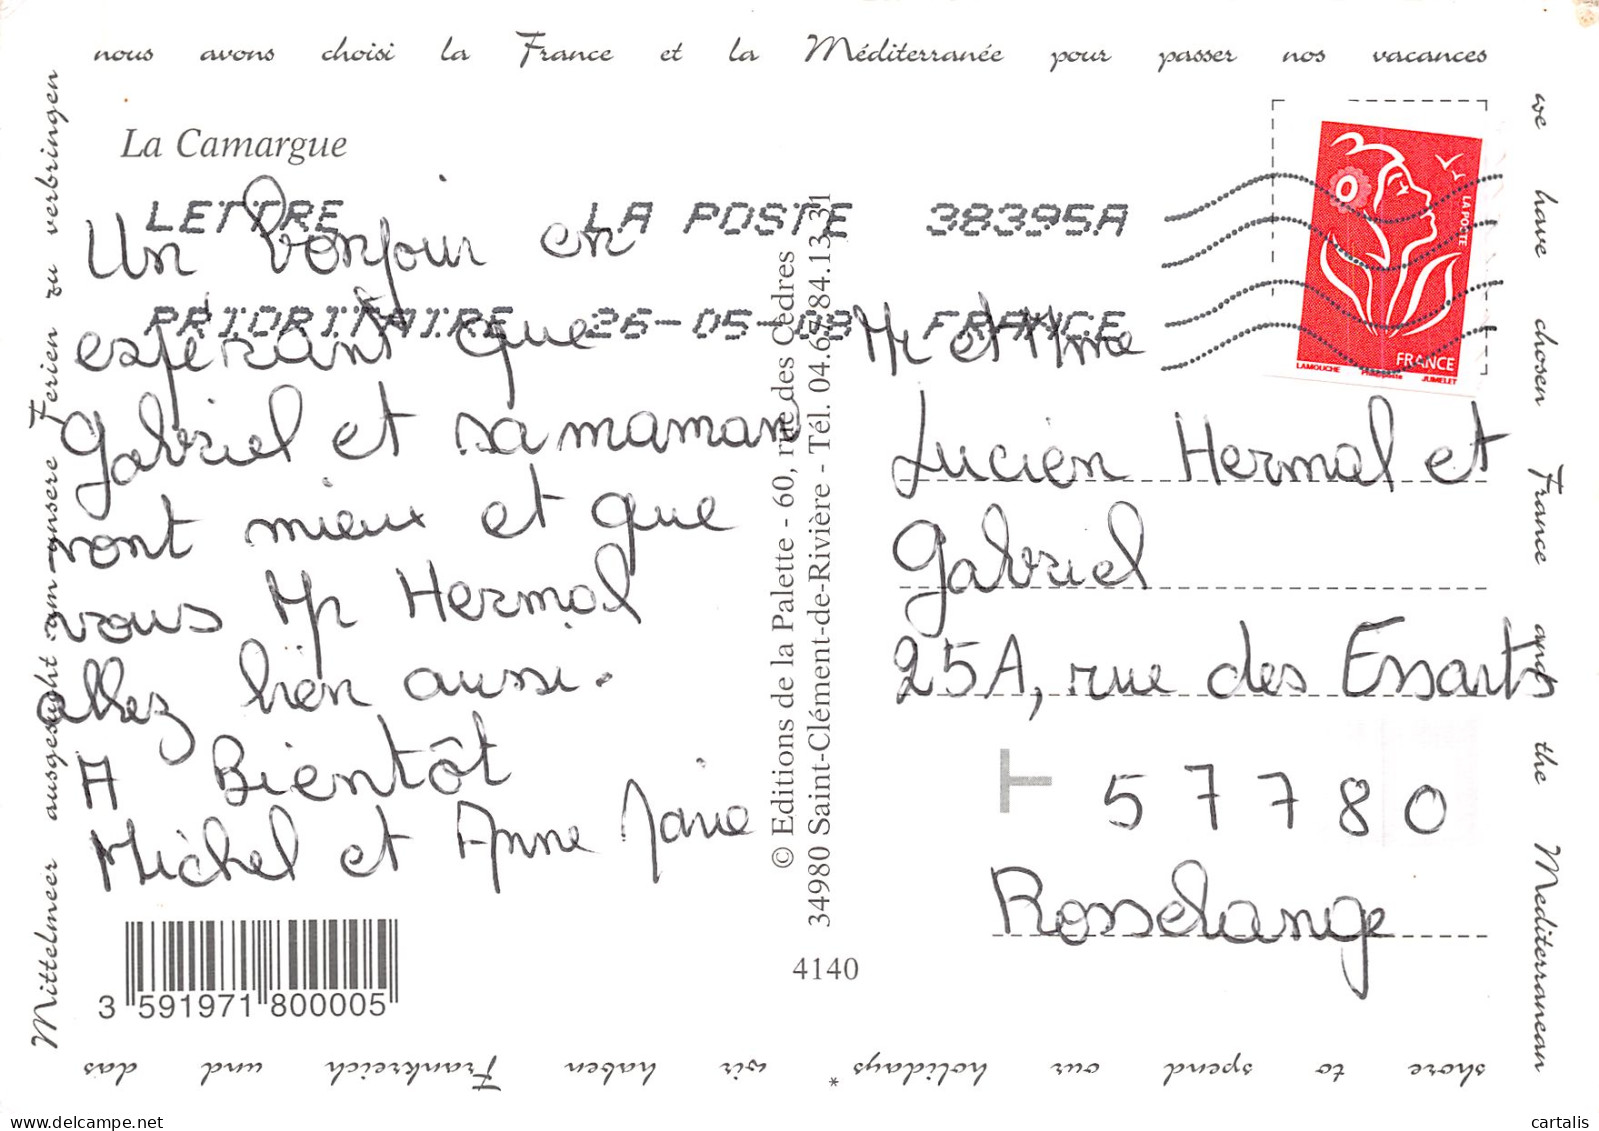 nous avons choisi la France et la Méditerranée pour passer nos vacances
we have chosen France and the Mediterranean
shore to spend our holidays * wir haben Frankreich und das
Mittelmeer ausgesucht um unsere Ferien zu verbringen
La Camargue
LETTRE LA POSTE 38395A
PRIORITAIRE 26-05-08 FRANCE
Un bonjour en
espérant que
Gabriel et sa maman
vont mieux et que
vous Mr Hermal
allez bien aussi.
A Bientôt
Michel et Anne Marie
3 591971 800005
© Editions de la Palette - 60, rue des Cèdres
34980 Saint-Clément-de-Rivière - Tél. 04.67.84.13.31
4140
LA POSTE
FRANCE
LAMOUCHE Phil@poste JUMELET
Mr et Mme
Lucien Hermal et
Gabriel
25A, rue des Essarts
T
57780
Rosselange
delcampe.net
cartalis